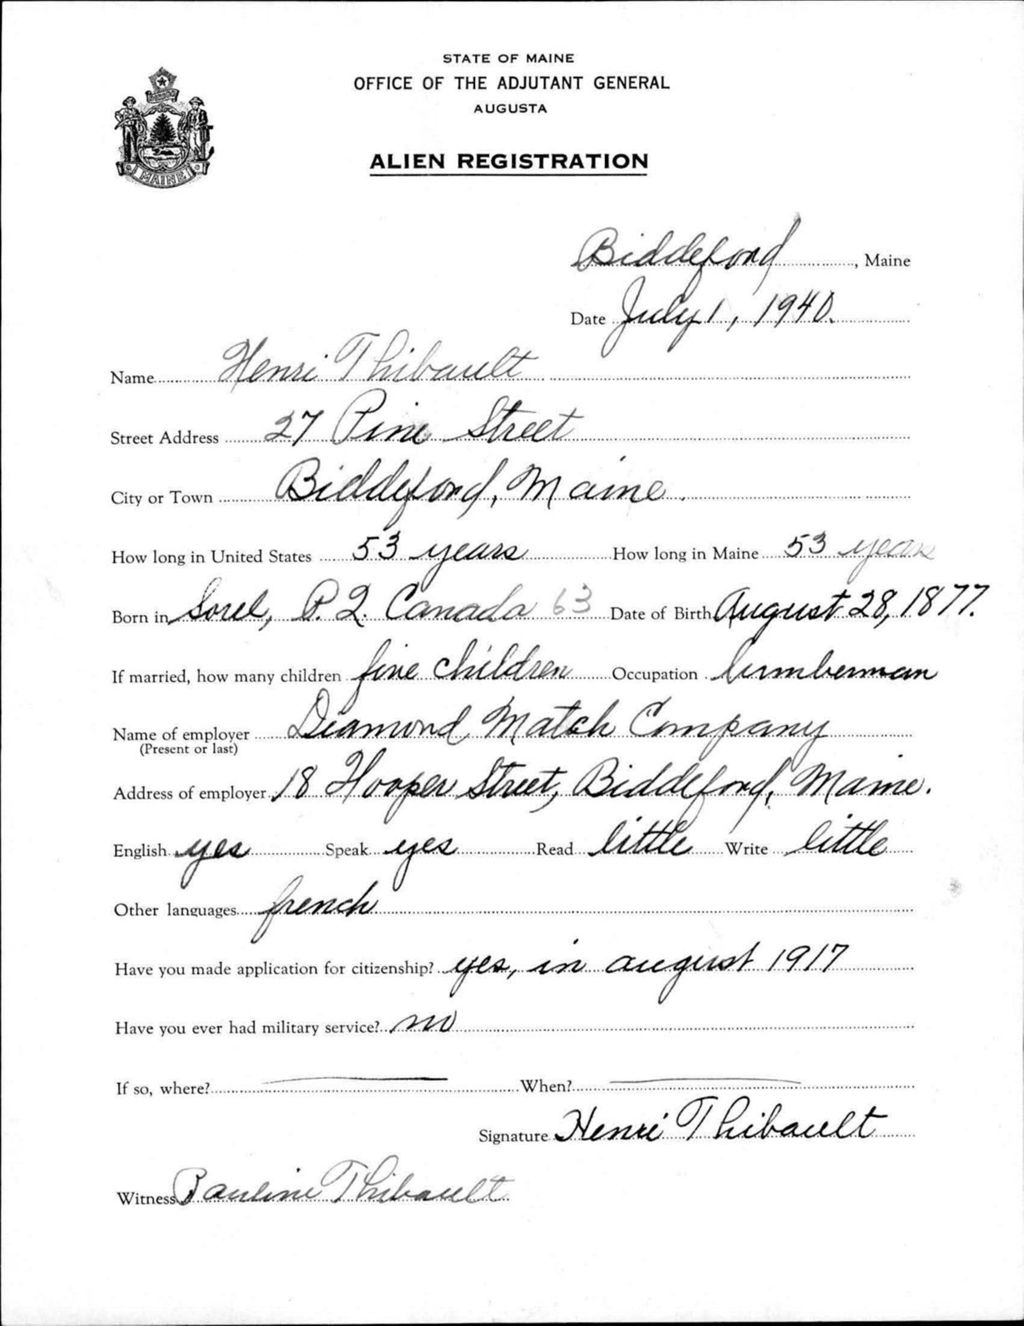 STATE OF MAINE
OFFICE OF THE ADJUTANT GENERAL
AUGUSTA
ALIEN REGISTRATION
MAINE
Biddeford, Maine
Date July 1, 1940.
Name Henri Thibault
Street Address 27 Pine Street
City or Town Biddeford, Maine.
How long in United States 53 years How long in Maine 53 years
Born in Sorel, P.Q. Canada 63 Date of Birth August 28, 1877.
If married, how many children five children Occupation lumberman
Name of employer Diamond Match Company
(Present or last)
Address of employer 18 Hooper Street, Biddeford, Maine.
English yes Speak yes Read little Write little
Other languages french
Have you made application for citizenship? yes, in august 1917
Have you ever had military service? no
If so, where? When?
Signature Henri Thibault
Witness Pauline Thibault